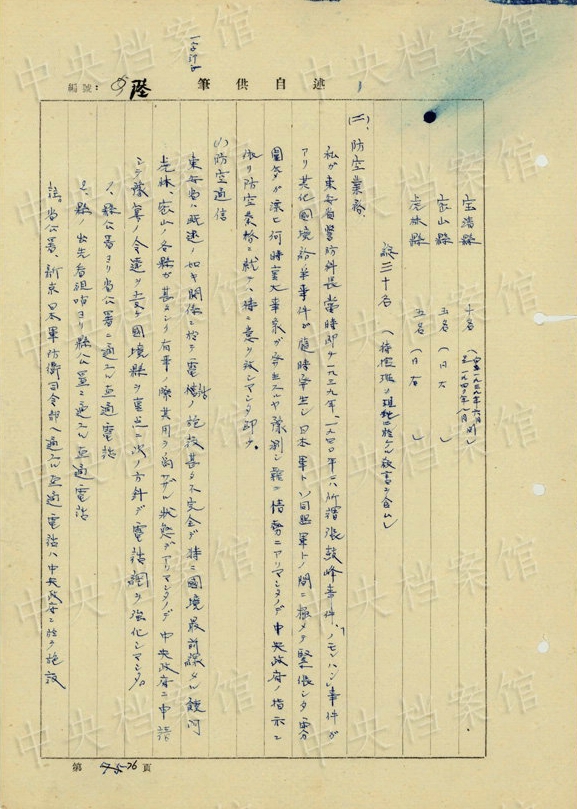 筆供自述
編號：
宝清縣 十名
密山縣 五名
虎林縣 五名
総計三十名
(二)、防空業務
私ガ東安省警防科長当時即チ一九三九年、一九四〇年ハ所謂張鼓峰事件、「ノモンハン」事件ガ
アリ其他國境紛争事件ガ随時発生シ日本軍ト「ソ」同盟軍トノ間ニ極メテ緊張シタ雰
囲気ガ漂ヒ何時重大事象ガ発生スルヤ豫測シ難キ情勢ニアリマシタノデ中央政府ノ指示ニ
依リ防空業務ニ就テハ特ニ意ヲ致シマシタ
(1)防空通信
東安省ハ既述ノ如キ関係ニ於テ電話ノ施設甚ダ不完全デ特ニ國境最前線タル饒河
虎林、密山ノ各縣ガ甚ダシク有事ノ際其用ヲ為サザル状態デアリマシタノデ中央政府ニ申請
シテ豫算ノ令達ヲ受ケ國境縣ヲ重点ニ次ノ方針デ電話網ヲ強化シマシタ。
1、縣公署ヨリ省公署ニ通ズル直通電話
2、縣出先看視哨ヨリ縣公署ニ通ズル直通電話
註。省公署、新京日本軍防衛司令部ヘ通ズル直通電話ハ中央政府ニ於テ施設
第 頁
中央档案馆